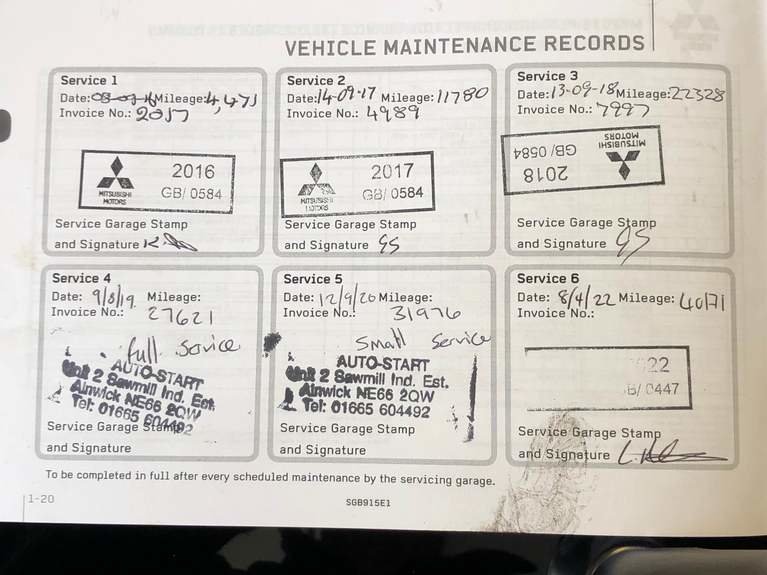 VEHICLE MAINTENANCE RECORDS
Service 1
Date: Mileage: 4,471
Invoice No.: 2057
MITSUBISHI MOTORS
2016
GB/ 0584
Service Garage Stamp
and Signature
Service 2
Date: 14-09-17 Mileage: 11780
Invoice No.: 4989
MITSUBISHI MOTORS
2017
GB/ 0584
Service Garage Stamp
and Signature GS
Service 3
Date: 13-09-18 Mileage: 22328
Invoice No.: 7997
MITSUBISHI MOTORS
2018
GB/ 0584
Service Garage Stamp
and Signature GS
Service 4
Date: 9/8/19 Mileage:
Invoice No.: 27621
full service
AUTO-START
Unit 2 Sawmill Ind. Est.
Alnwick NE66 2QW
Tel: 01665 604492
Service Garage Stamp
and Signature
Service 5
Date: 12/9/20 Mileage:
Invoice No.: 31976
Small Service
AUTO-START
Unit 2 Sawmill Ind. Est.
Alnwick NE66 2QW
Tel: 01665 604492
Service Garage Stamp
and Signature
Service 6
Date: 8/4/22 Mileage: 40171
Invoice No.:
22
B/ 0447
Service Garage Stamp
and Signature
To be completed in full after every scheduled maintenance by the servicing garage.
1-20
SGB915E1